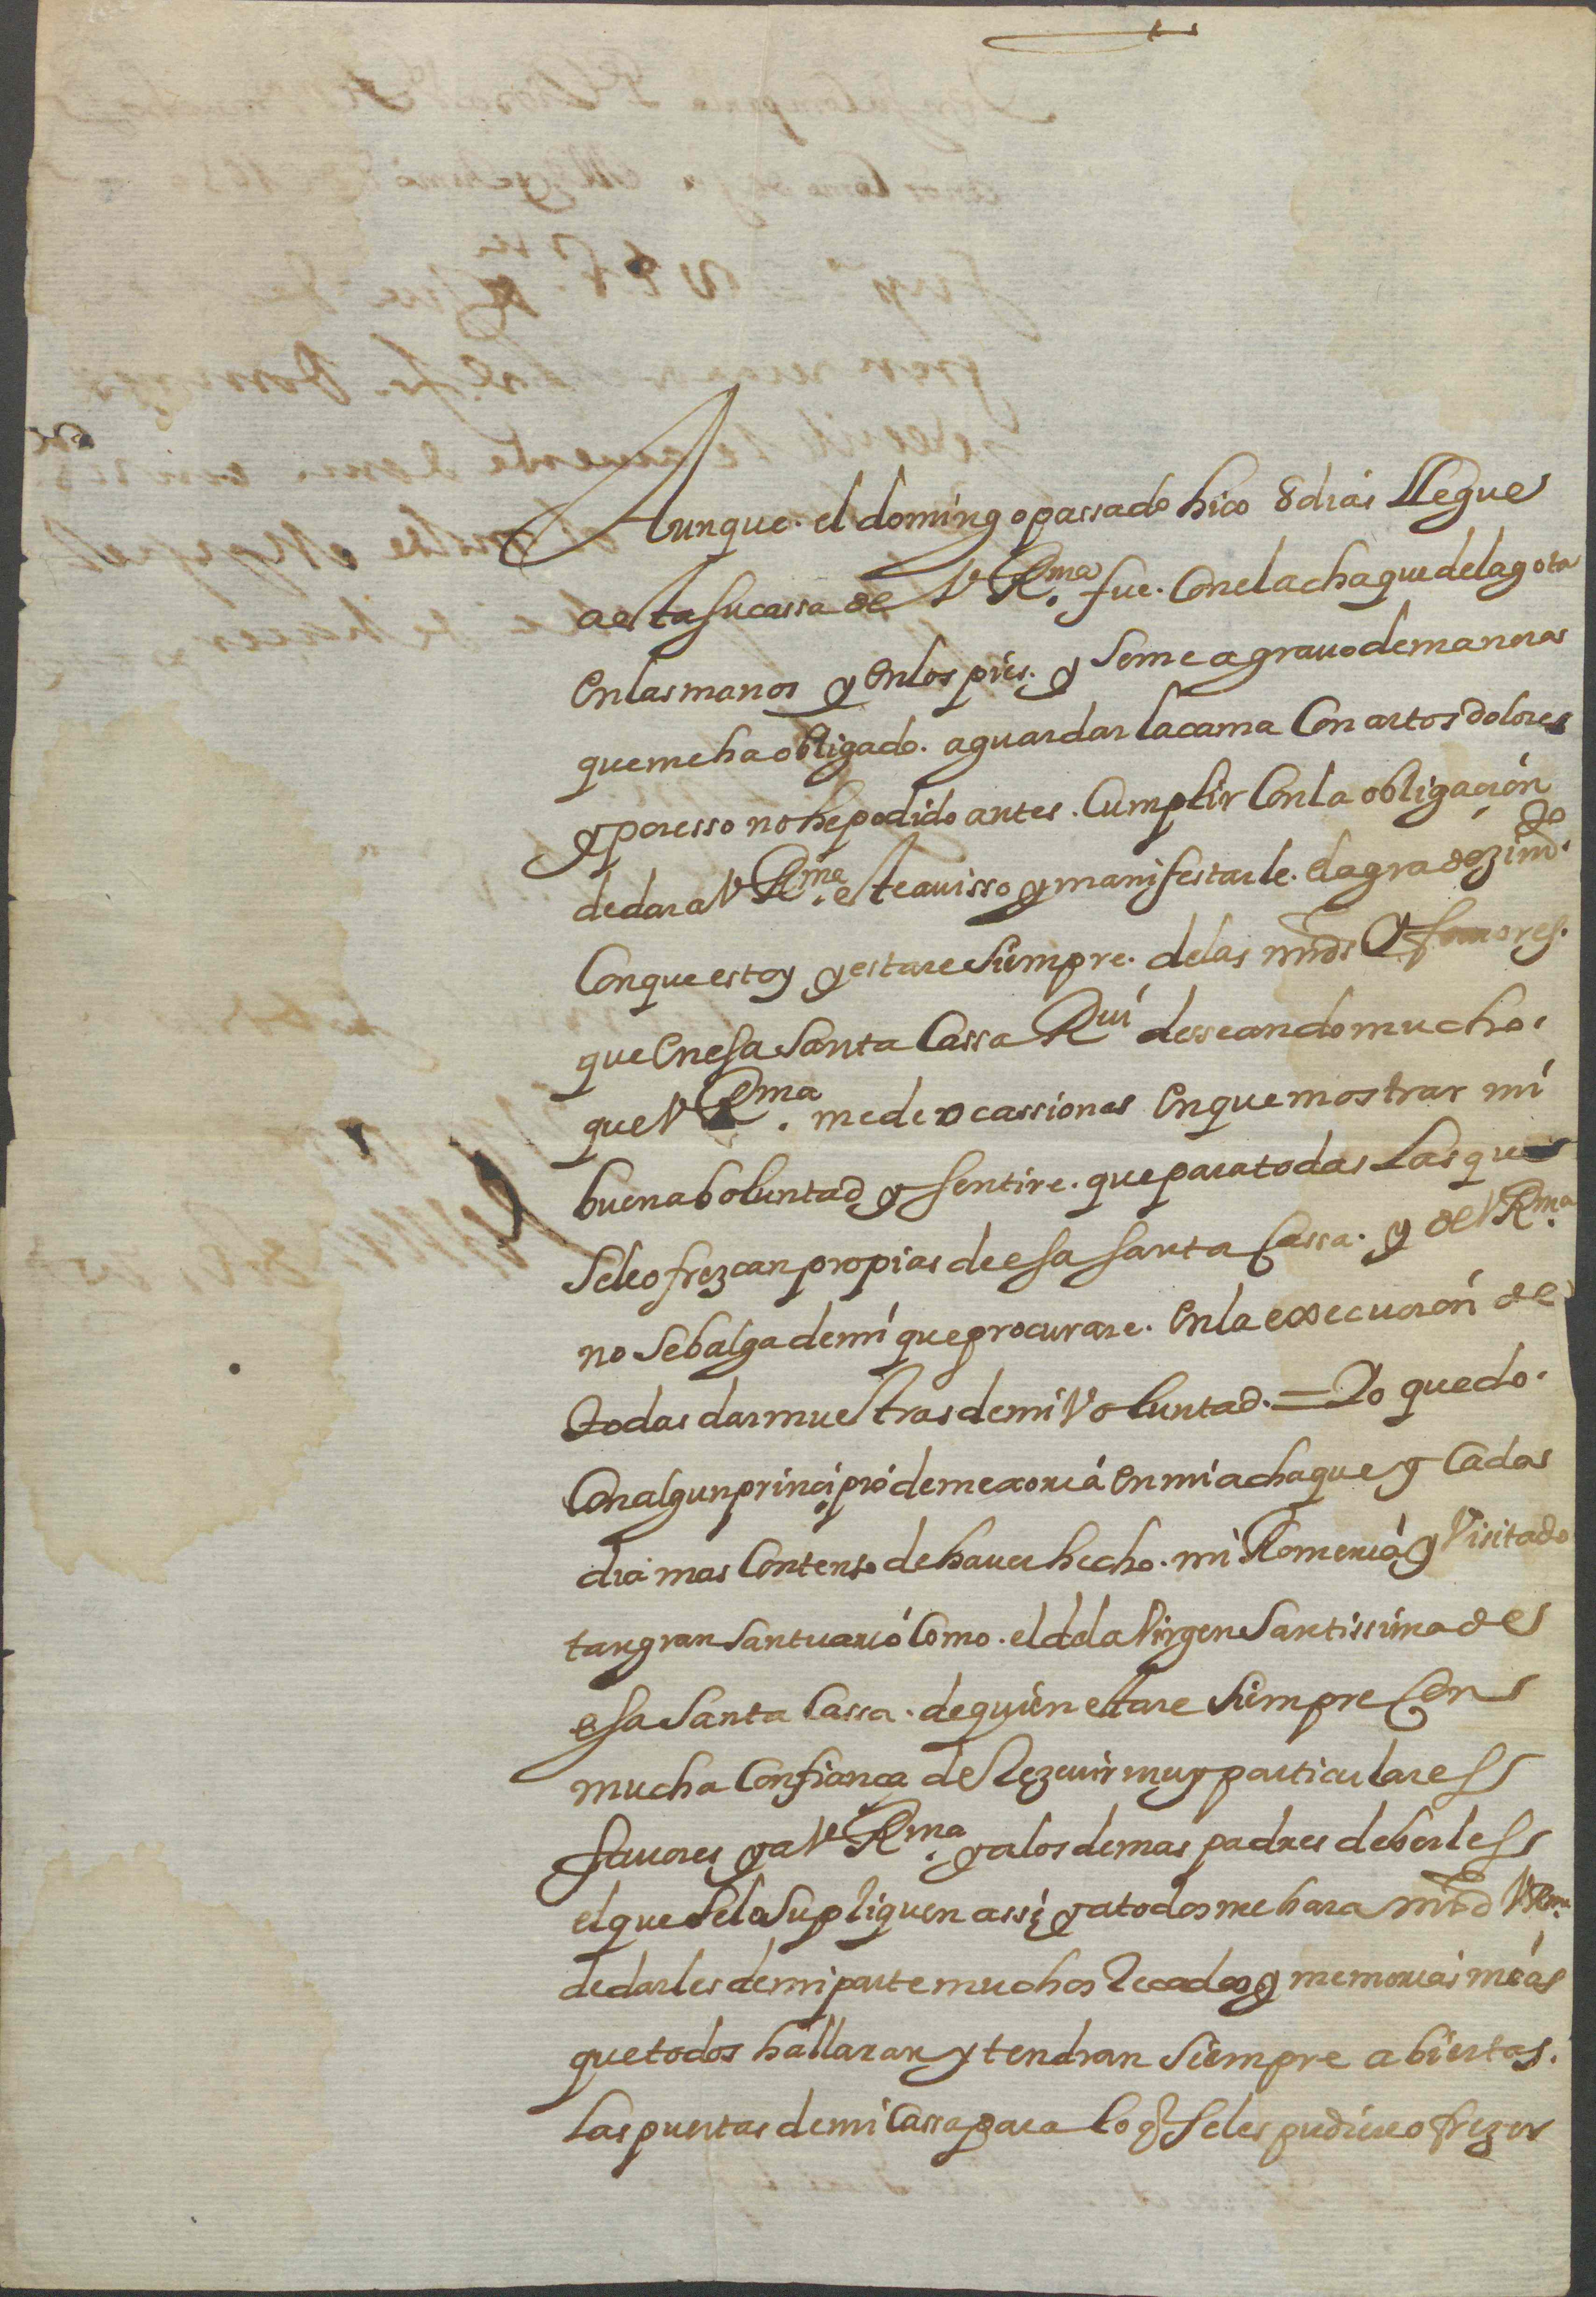 Aunque. el domingo passado hiço 8 dias llegue
a esta su cassa de V Rma. fue. Con el achaque de la gota
En las manos y En los pies. y se me agrauo de manera
que me ha obligado. a guardar la cama Con artos dolores
y por esso no he podido antes. Cumplir Con la obligaçión
de dar a V Rma. este auisso y manifestarle. el agradezimdo.
Con que estoy y estare siempre. de las mrds y fauores.
que En esa santa Cassa Rui desseando mucho.
que V Rma. me de ocassiones En que mostrar mi
buena boluntad y sentire. que para todas Las que
se le ofrezcan propias de esa santa Cassa. y de V Rma.
no se balga de mi que procurare. En la execuçion de
todas dar muestras de mi Voluntad. = Yo quedo.
Con algun prinçipio de mexoria En mi achaque y Cada
dia mas Contento de hauer hecho. mi Romeria y Visitado
tan gran santuario Como. el de la Virgen santissima de
esa santa Cassa. de quien estare siempre Con
mucha Confiança de Rezeuir muy particulares
fauores y a V Rma. y a los demas padres deberles
el que se lo supliquen assi y a todos me hara mrd V Rma.
de darles de mi parte muchos Recados y memorias mias
que todos hallaran y tendran siempre abiertas.
las puertas de mi Cassa para lo q se les pudiere ofrezer